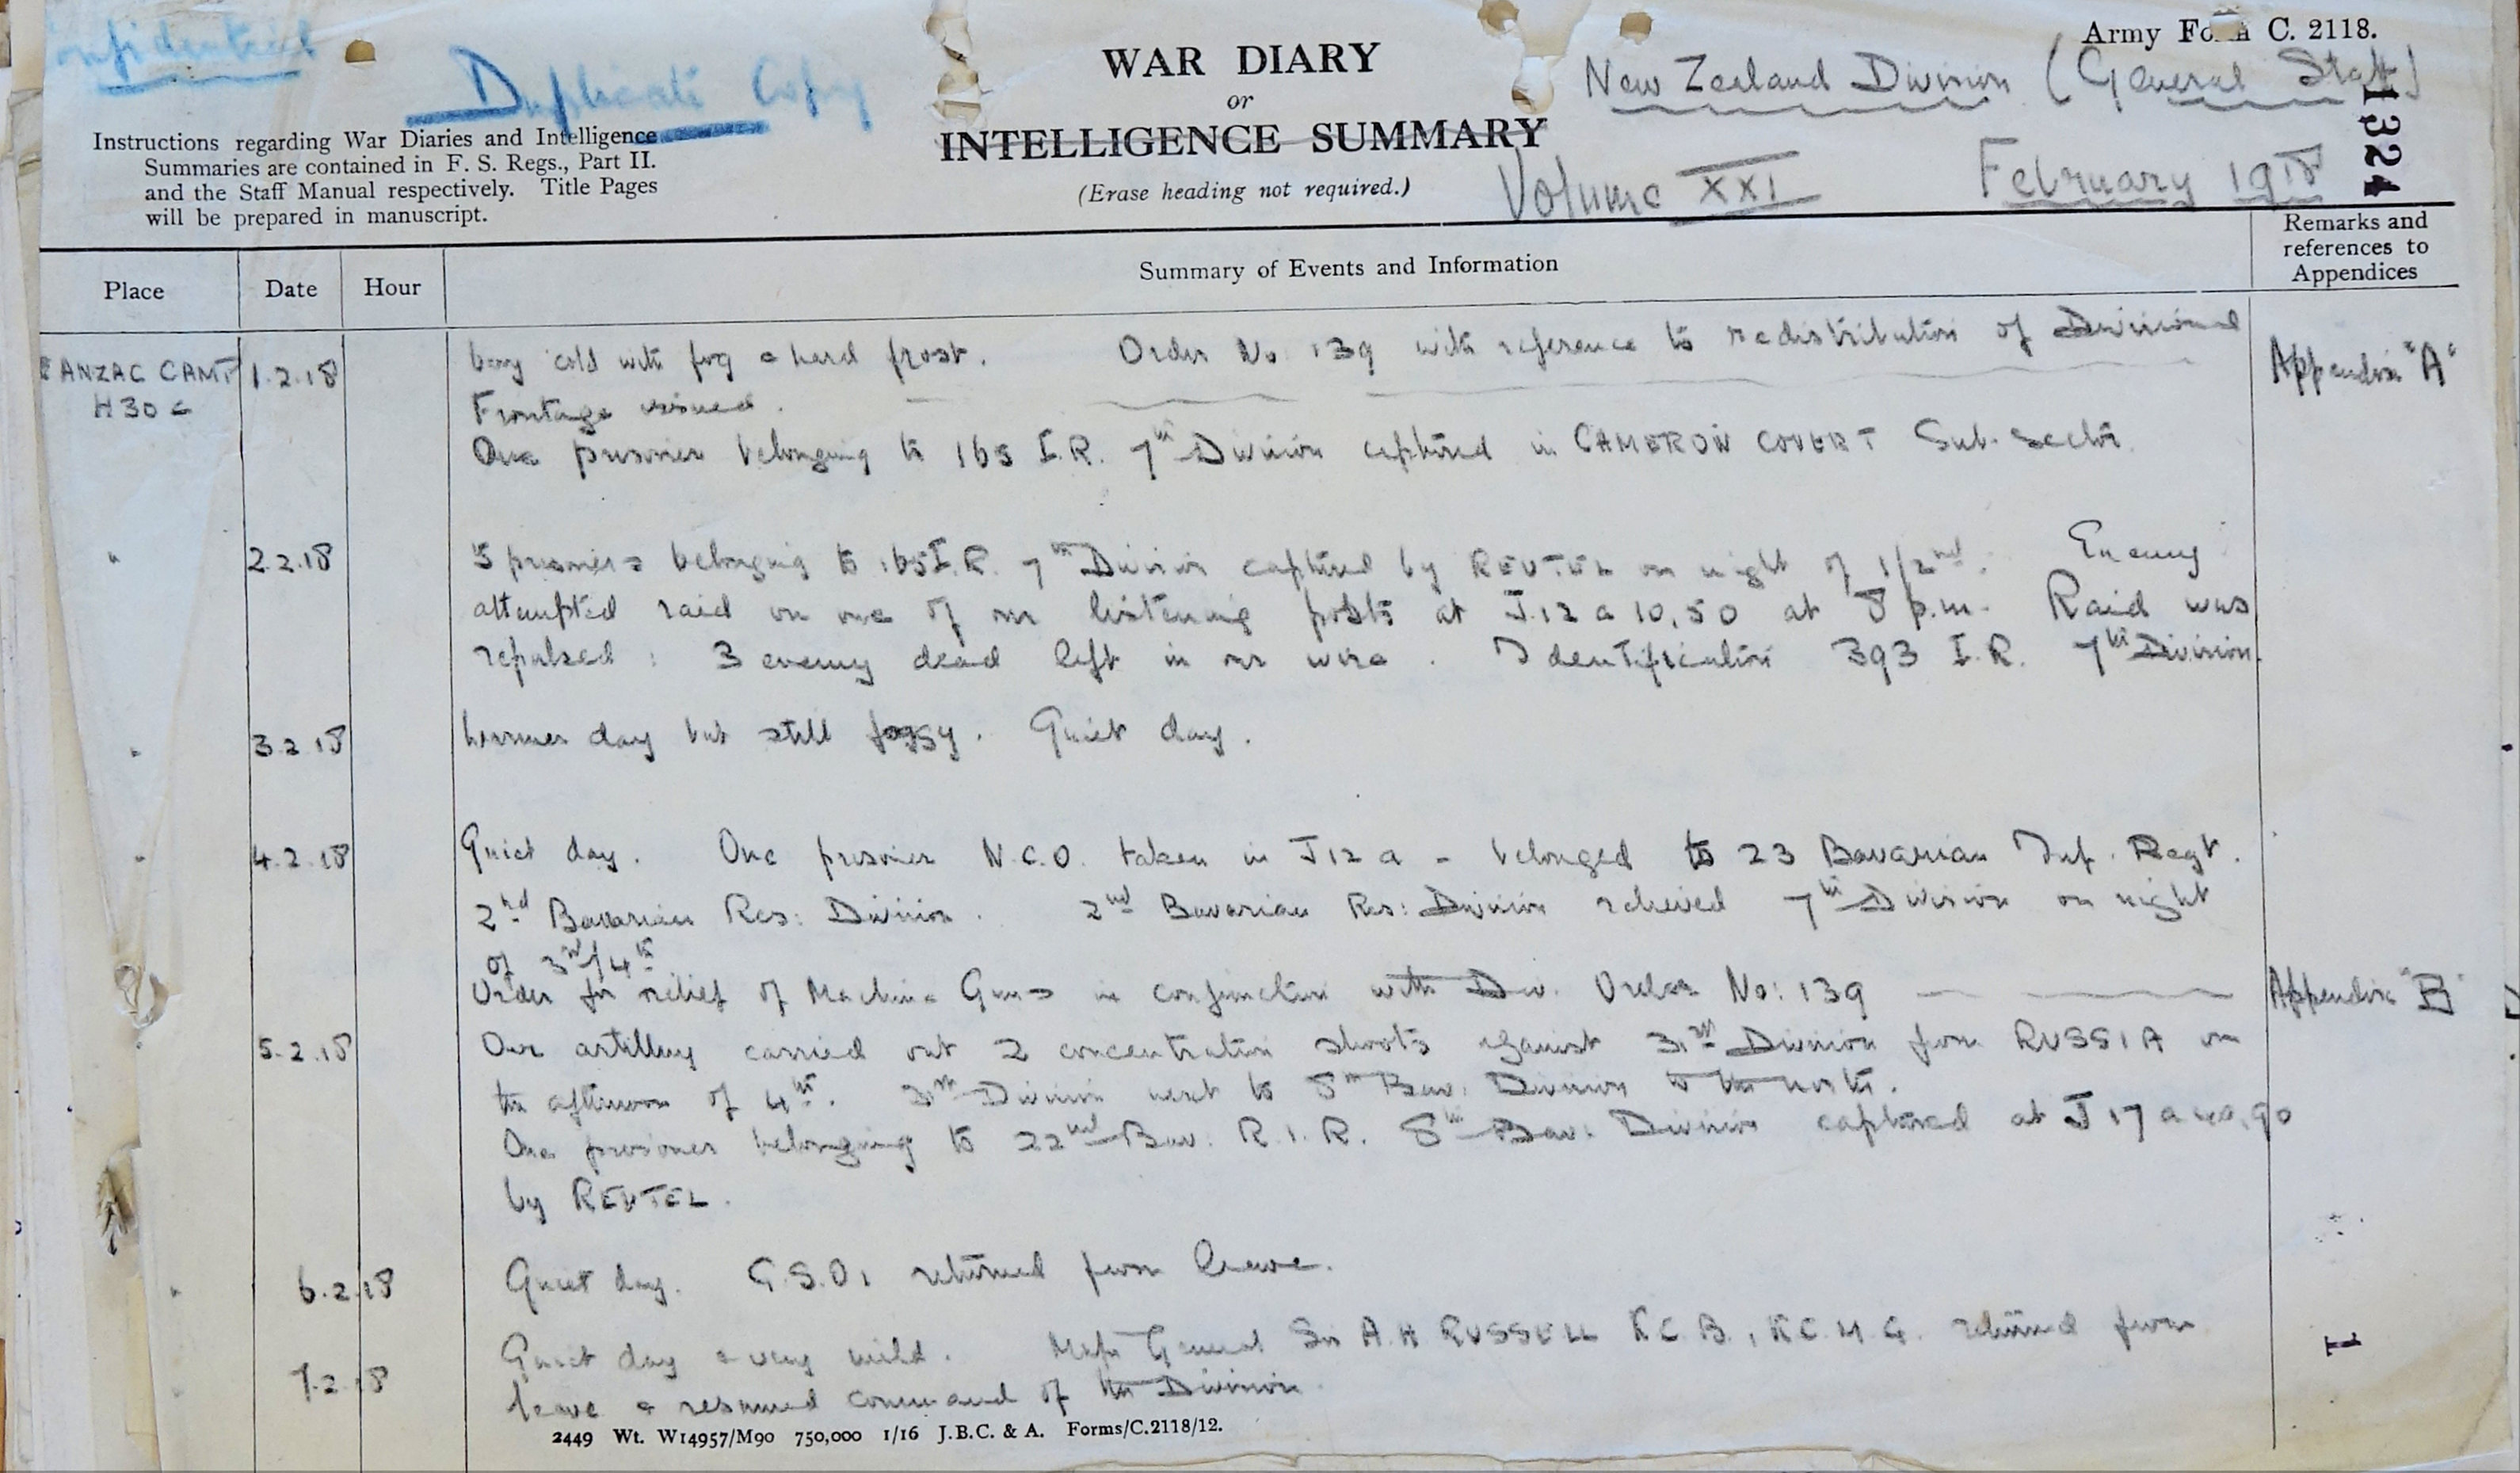 Confidential
Duplicate Copy
Army Form C. 2118.
WAR DIARY
or
INTELLIGENCE SUMMARY
(Erase heading not required.)
New Zealand Division (General Staff)
Volume XXI February 1918
1324
Instructions regarding War Diaries and Intelligence
Summaries are contained in F. S. Regs., Part II.
and the Staff Manual respectively. Title Pages
will be prepared in manuscript.
Place Date Hour Summary of Events and Information Remarks and
references to
Appendices
ANZAC CAMP 1.2.18 Very cold with fog & hard frost. Order No 139 with reference to redistribution of Divisional Appendix "A"
H30c Frontage issued.
One prisoner belonging to 165 I.R. 7th Division captured in CAMERON COVERT Sub-sector.
" 2.2.18 5 prisoners belonging to 165 I.R. 7th Division captured by REUTEL on night of 1/2nd. Enemy
attempted raid on one of our listening posts at J.12 a 10,50 at 8 p.m. Raid was
repulsed : 3 enemy dead left in our wire. Identification 393 I.R. 7th Division.
" 3.2.18 Warmer day but still foggy. Quiet day.
" 4.2.18 Quiet day. One prisoner N.C.O. taken in J12a - belonged to 23 Bavarian Inf. Regt.
2nd Bavarian Res: Division. 2nd Bavarian Res: Division relieved 7th Division on night
of 3rd/4th
Order for relief of Machine Guns in conjunction with Div. Order No: 139 Appendix "B"
5.2.18 Our artillery carried out 2 concentration shoots against 31st Division from RUSSIA on
the afternoon of 4th. 31st Division next to 8th Bav. Division to the north.
One prisoner belonging to 22nd Bav. R.I.R. 8th Bav. Division captured at J 17 a 40,90
by REUTEL.
" 6.2.18 Quiet day. G.S.O.1 returned from leave.
" 7.2.18 Quiet day & very mild. Major General Sir A.H RUSSELL K.C.B., K.C.M.G. returned from
leave & resumed command of the Division.
1
2449 Wt. W14957/M90 750,000 1/16 J.B.C. & A. Forms/C.2118/12.